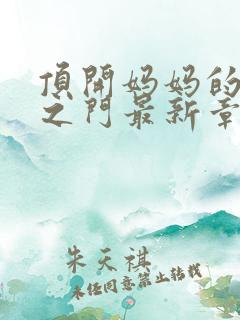 頂開妈妈的
之门最新章
朱天祺
未经同意禁止转载